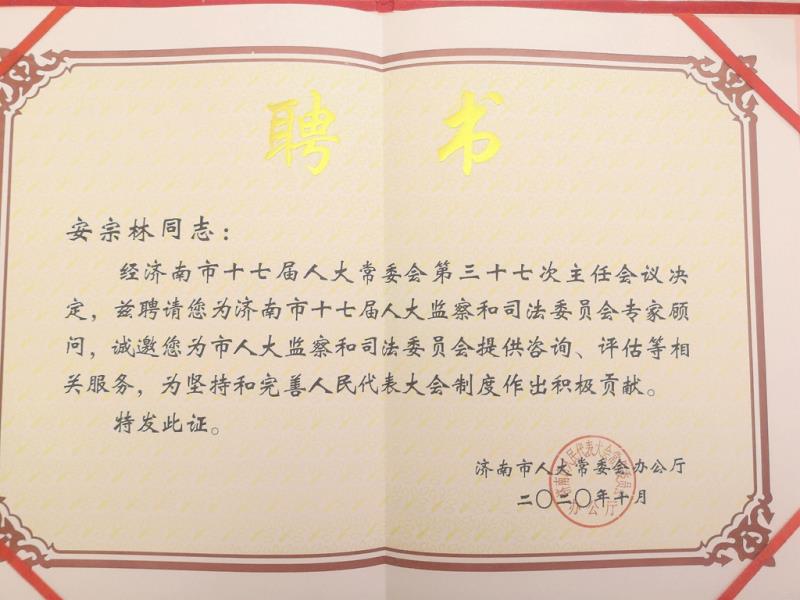 聘书
安宗林同志：
经济南市十七届人大常委会第三十七次主任会议决
定，兹聘请您为济南市十七届人大监察和司法委员会专家顾
问，诚邀您为市人大监察和司法委员会提供咨询、评估等相
关服务，为坚持和完善人民代表大会制度作出积极贡献。
特发此证。
济南市人大常委会办公厅
二〇二〇年十月
济南市人民代表大会常务委员会
办公厅